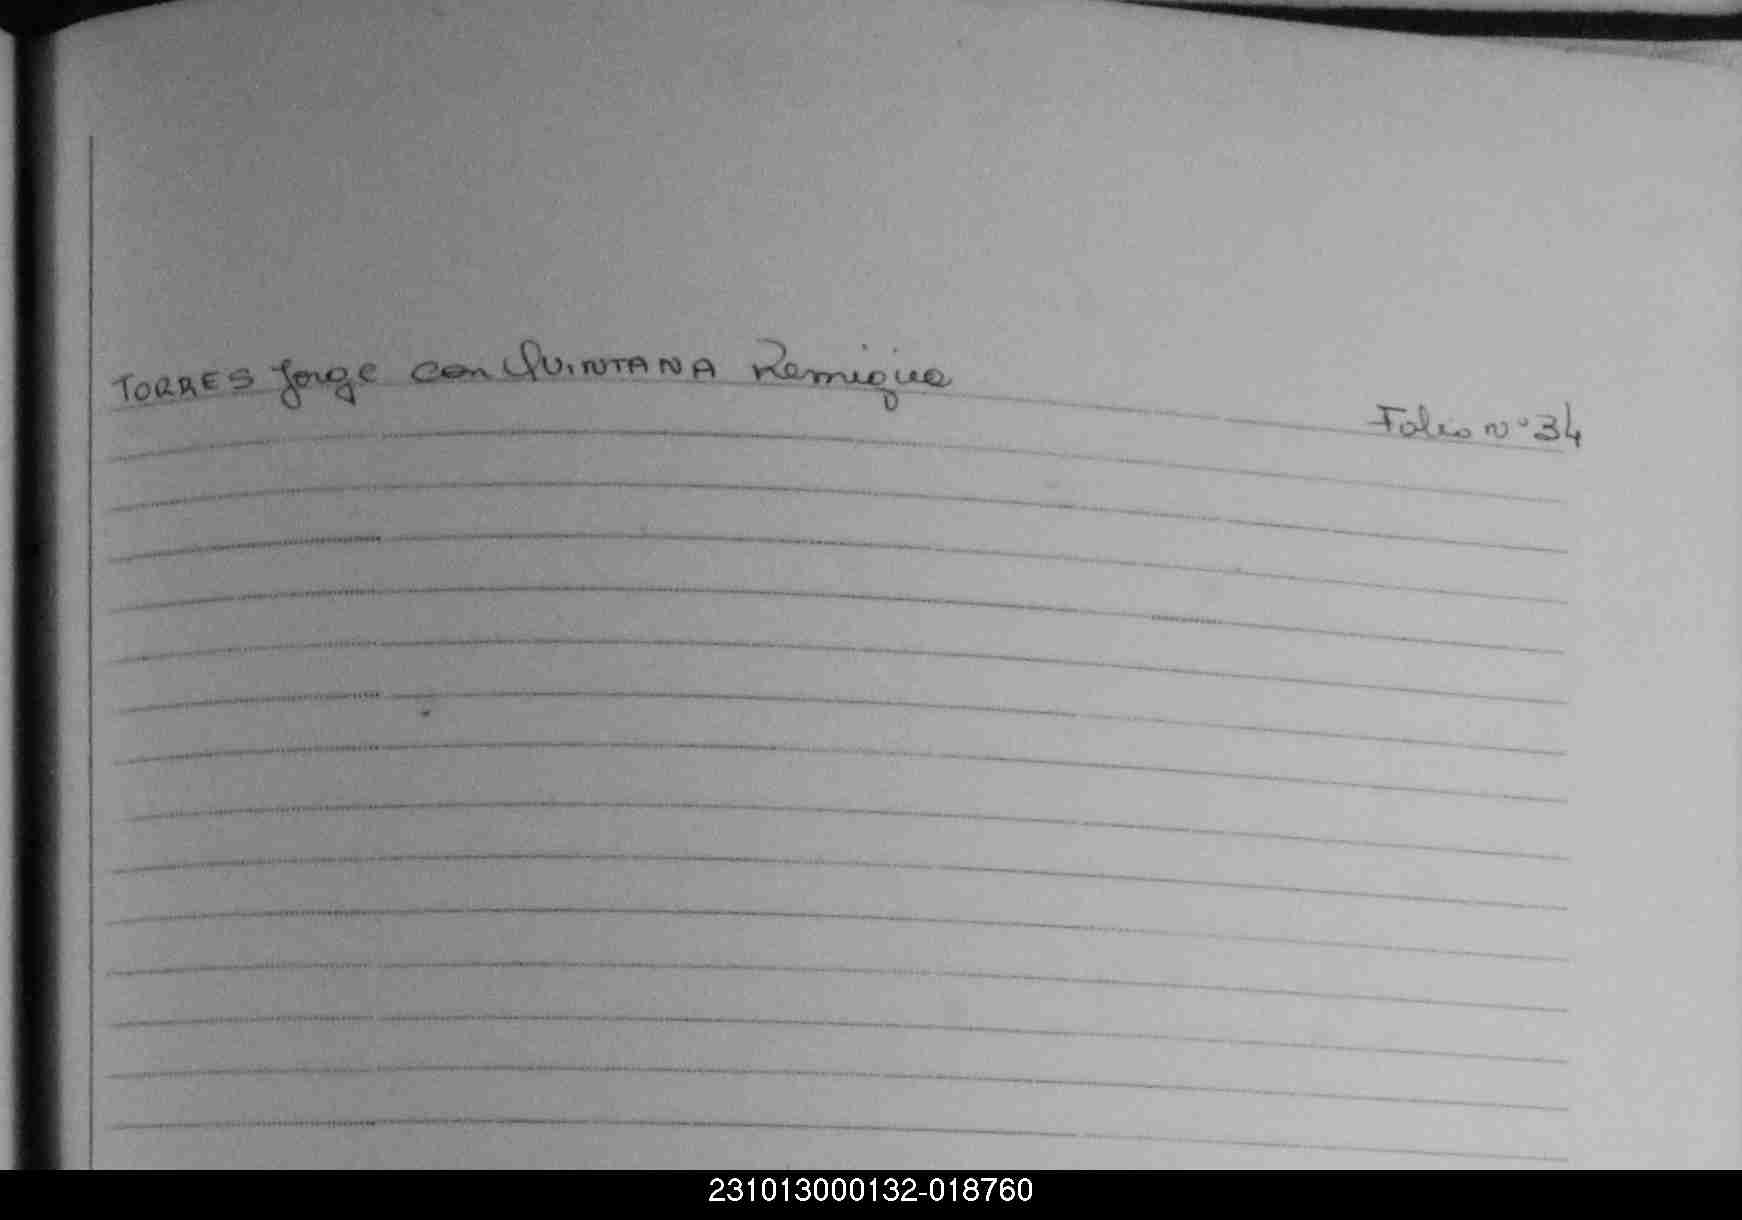 TORRES Jorge con QUINTANA Remigia
Folio nº 34
231013000132-018760